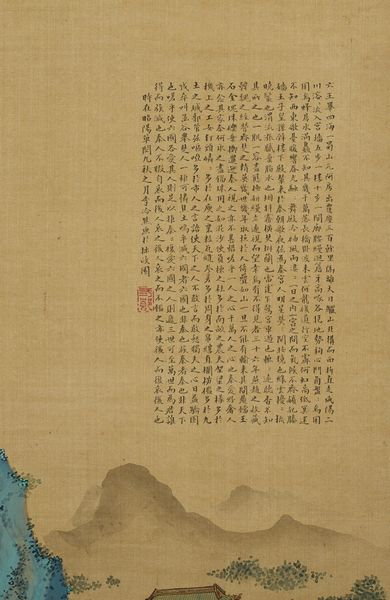 六王畢四海一蜀山兀阿房出覆壓三百餘里隔離天日驪山北構而西折直走咸陽二
川溶々流入宮牆五步一樓十步一閣廊腰縵迴簷牙高啄各抱地勢鉤心鬥角盤々焉囷
囷焉蜂房水渦矗不知其幾千萬落長橋臥波未雲何龍複道行空不霽何虹高低冥迷
不知西東歌臺暖響春光融々舞殿冷袖風雨凄々一日之內一宮之間而氣候不齊妃嬪媵
嬙王子皇孫辭樓下殿輦來於秦朝歌夜絃為秦宮人明星熒々開妝鏡也綠雲擾々梳
曉鬟也渭流漲膩棄脂水也煙斜霧橫焚椒蘭也雷霆乍驚宮車過也轆々遠聽杳不知
其所之也一肌一容盡態極妍縵立遠視而望幸焉有不得見者三十六年燕趙之收藏
韓魏之經營齊楚之精英幾世幾年取掠其人倚疊如山一旦不能有輸來其間鼎鐺玉
石金塊珠礫棄擲邐迤秦人視之亦不甚惜嗟乎一人之心千萬人之心也秦愛紛奢人
亦念其家奈何取之盡錙銖用之如泥沙使負棟之柱多於南畝之農夫架梁之椽多於
機上之工女釘頭磷々多於在庾之粟粒瓦縫參差多於周身之帛縷直欄橫檻多於九
土之城郭管絃嘔啞多於市人之言語使天下之人不敢言而敢怒獨夫之心日益驕固
戍卒叫函谷舉楚人一炬可憐焦土嗚乎滅六國者六國也非秦也族秦者秦也非天下
也嗟乎使六國各愛其人則足以拒秦秦復愛六國之人則遞三世可至萬世而為君誰
得而族滅也秦人不暇自哀而後人哀之後人哀之而不鑑之亦使後人而復哀後人也
時在昭陽單閼九秋之月